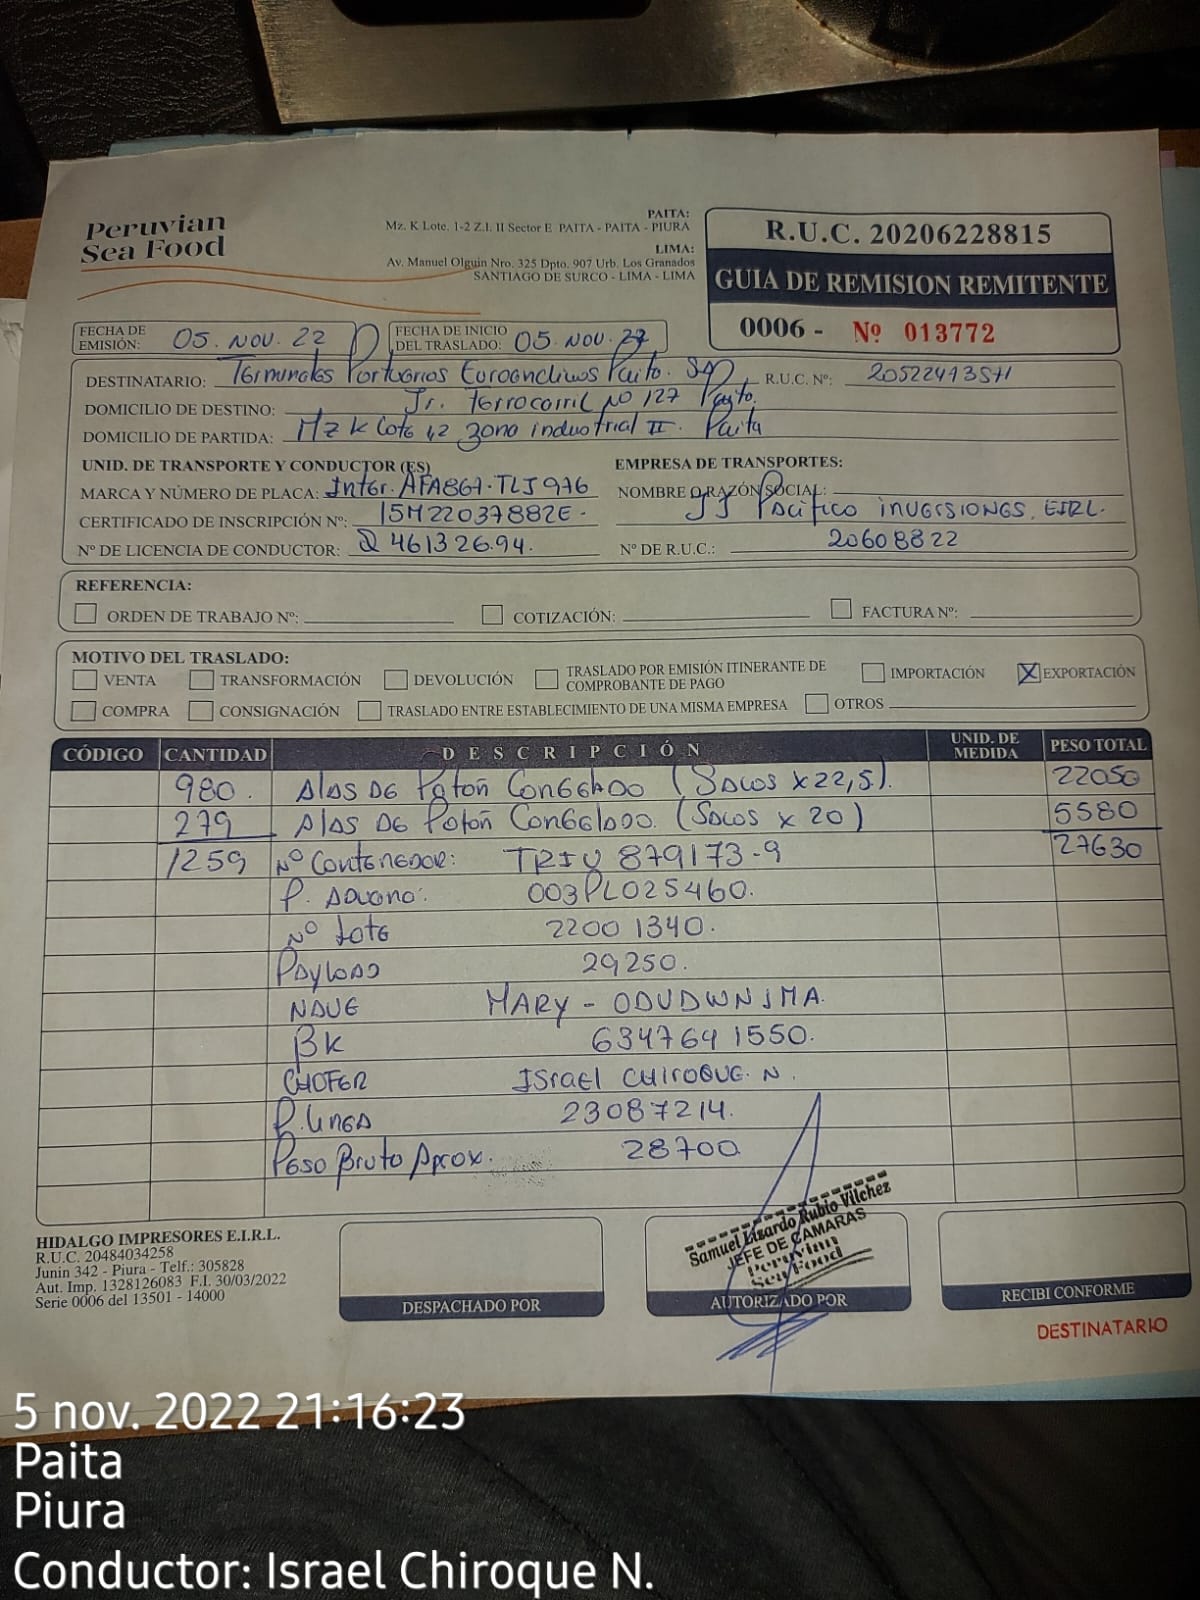 Peruvian
Sea Food
PAITA:
Mz. K Lote. 1-2 Z.I. II Sector E PAITA - PAITA - PIURA
LIMA:
Av. Manuel Olguin Nro. 325 Dpto. 907 Urb. Los Granados
SANTIAGO DE SURCO - LIMA - LIMA
R.U.C. 20206228815
GUIA DE REMISION REMITENTE
0006 - Nº 013772
FECHA DE EMISIÓN: 05. NOV. 22
FECHA DE INICIO DEL TRASLADO: 05 NOV. 22
DESTINATARIO: Terminales Portuarios Euroandinos Paita. SA R.U.C. Nº: 20522473571
DOMICILIO DE DESTINO: Jr. Ferrocarril Nº 127 Paita.
DOMICILIO DE PARTIDA: Mz K Lote 1,2 Zona industrial II. Paita
UNID. DE TRANSPORTE Y CONDUCTOR (ES)
MARCA Y NÚMERO DE PLACA: Inter. AFA867. TLJ976
CERTIFICADO DE INSCRIPCIÓN Nº: 15M22037882E.
Nº DE LICENCIA DE CONDUCTOR: Q 46132694.
EMPRESA DE TRANSPORTES:
NOMBRE O RAZÓN SOCIAL:
JJ Pacifico inversiones. EIRL.
Nº DE R.U.C.: 20608822
REFERENCIA:
ORDEN DE TRABAJO Nº: COTIZACIÓN: FACTURA Nº:
MOTIVO DEL TRASLADO:
VENTA TRANSFORMACIÓN DEVOLUCIÓN TRASLADO POR EMISIÓN ITINERANTE DE COMPROBANTE DE PAGO IMPORTACIÓN X EXPORTACIÓN
COMPRA CONSIGNACIÓN TRASLADO ENTRE ESTABLECIMIENTO DE UNA MISMA EMPRESA OTROS
CÓDIGO CANTIDAD DESCRIPCIÓN UNID. DE MEDIDA PESO TOTAL
980. Alas de Potón Congelado (Sacos x 22,5). 22050
279 Alas de Potón Congelado. (Sacos x 20) 5580
1259 Nº Contenedor: TRIU 879173-9 27630
P. Aduana: 003PL025460.
Nº Lote 2200 1340.
Payload 29250.
Nave MARY - ODUDWNJMA.
BK 6347641550.
CHOFER ISrael CHIROQUE. N.
P. Linea 23087214.
Peso Bruto Aprox. 28700
HIDALGO IMPRESORES E.I.R.L.
R.U.C. 20484034258
Junin 342 - Piura - Telf.: 305828
Aut. Imp. 1328126083 F.I. 30/03/2022
Serie 0006 del 13501 - 14000
DESPACHADO POR
Samuel Lizardo Rubio Vilchez
JEFE DE CAMARAS
Peruvian
Sea Food
AUTORIZADO POR
RECIBI CONFORME
DESTINATARIO
5 nov. 2022 21:16:23
Paita
Piura
Conductor: Israel Chiroque N.